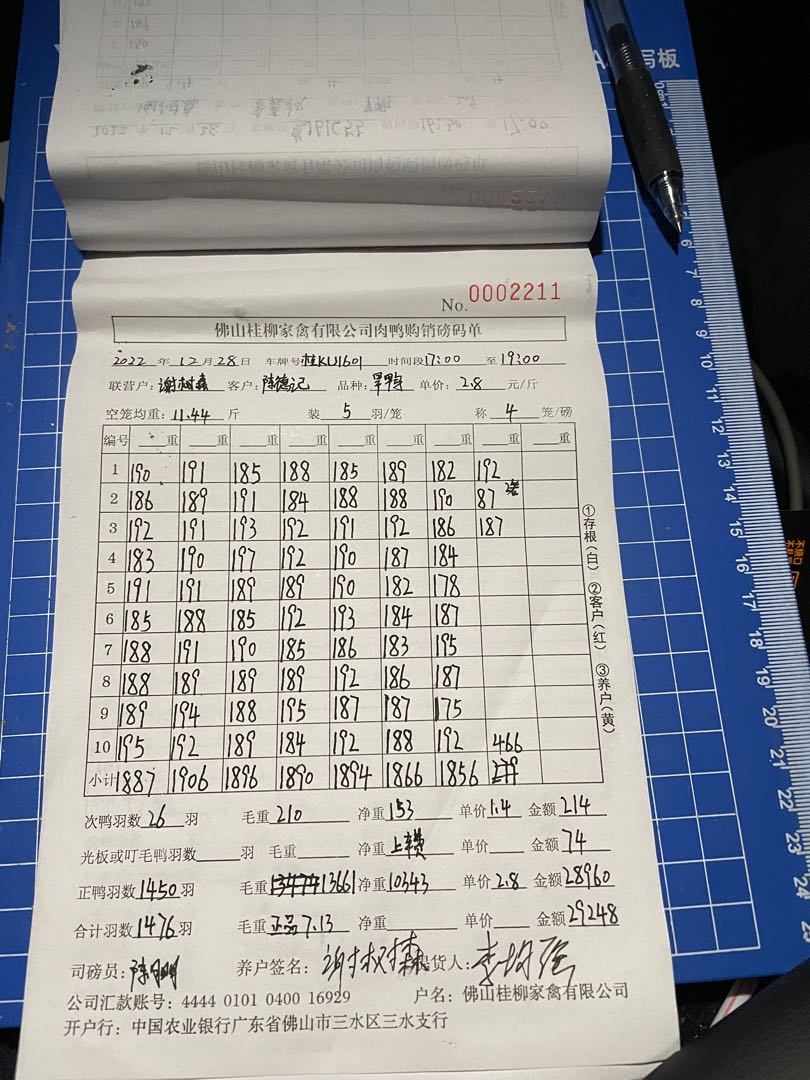 写板
0002210
No. 0002211
佛山桂柳家禽有限公司肉鸭购销磅码单
2022 年 12 月 28 日 车牌号桂KU1601 时间段17:00 至 19:00
联营户：谢树森 客户：陆德记 品种：旱鸭 单价：2.8 元/斤
空笼均重：11.44 斤 装 5 羽/笼 称 4 笼/磅
编号 重 重 重 重 重 重 重 重 重
1 190 191 185 188 185 189 182 192
2 186 189 191 184 188 188 190 87
3 192 191 193 192 191 192 186 187
4 183 190 197 192 190 187 184
5 191 191 189 189 190 182 178
6 185 188 185 192 193 184 187
7 188 191 190 185 186 183 195
8 188 189 189 189 192 186 187
9 189 194 188 195 187 187 175
10 195 192 189 184 192 188 192 466
小计 1887 1906 1896 1890 1894 1866 1856
①存根(白) ②客户(红) ③养户(黄)
次鸭羽数 26 羽 毛重 210 净重 153 单价 1.4 金额 214
光板或叮毛鸭羽数 羽 毛重 净重 上车费 单价 金额 74
正鸭羽数 1450 羽 毛重 13474 13661 净重 10343 单价 2.8 金额 28960
合计羽数 1476 羽 毛重 正品 7.13 净重 单价 金额 29248
司磅员： 养户签名：谢树森 提货人：
公司汇款账号：4444 0101 0400 16929 户名：佛山桂柳家禽有限公司
开户行：中国农业银行广东省佛山市三水区三水支行